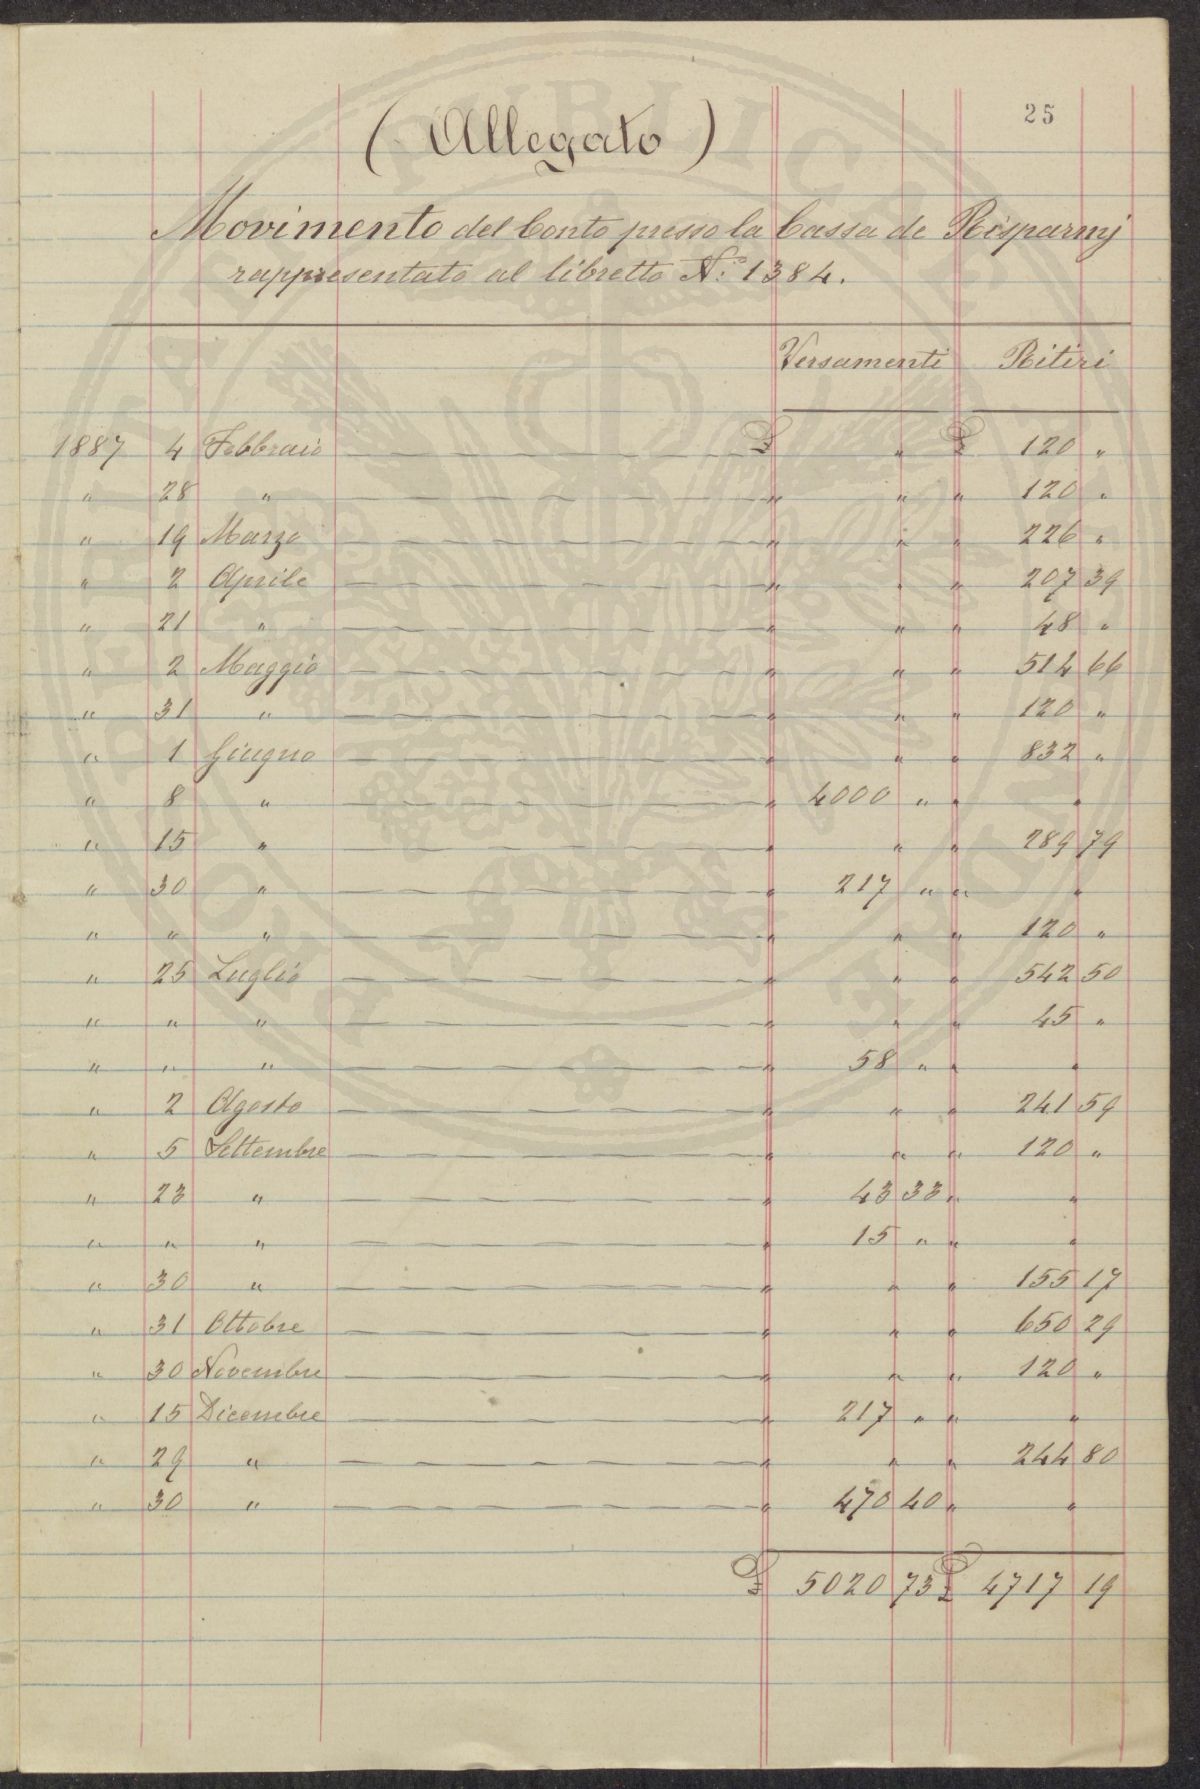 25
(Allegato)
Movimento del Conto presso la Cassa de Risparmj
rappresentato al libretto N.º 1384.
Versamenti Ritiri
1887 4 Febbraio £ " £ 120 "
" 28 " " " " 120 "
" 19 Marzo " " " 226 "
" 2 Aprile " " " 207 39
" 21 " " " " 48 "
" 2 Maggio " " " 514 66
" 31 " " " " 120 "
" 1 Giugno " " " 832 "
" 8 " " 4000 " " "
" 15 " " " " 289 79
" 30 " " 217 " " "
" " " " " " 120 "
" 25 Luglio " " " 542 50
" " " " " " 45 "
" " " " 58 " " "
" 2 Agosto " " " 241 59
" 5 Settembre " " " 120 "
" 23 " " 43 33 " "
" " " " 15 " " "
" 30 " " " " 155 17
" 31 Ottobre " " " 650 29
" 30 Novembre " " " 120 "
" 15 Dicembre " 217 " " "
" 29 " " " " 244 80
" 30 " " 470 40 " "
£ 5020 73 £ 4717 19